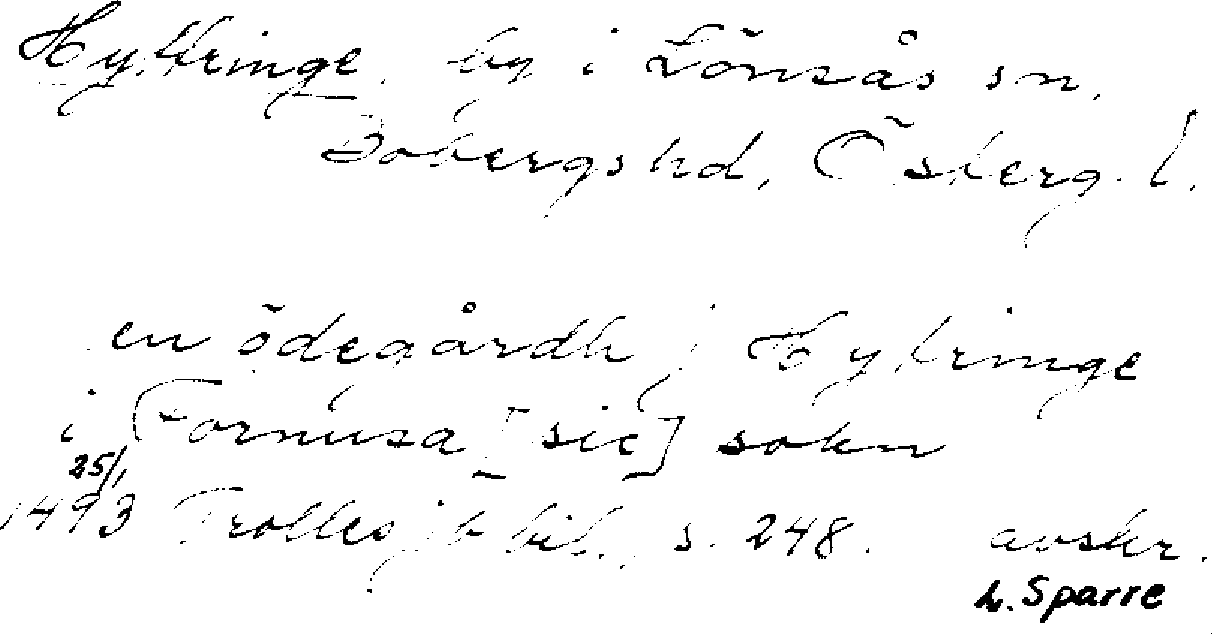 Hyttringe, by i Lönsås sn,
Bobergs hd, Österg. l.
en ödegårdh j Hytringe
i Fornusa [sic] sokn
25/1
1493 Trolles jb bil., s. 248. avskr.
L. Sparre